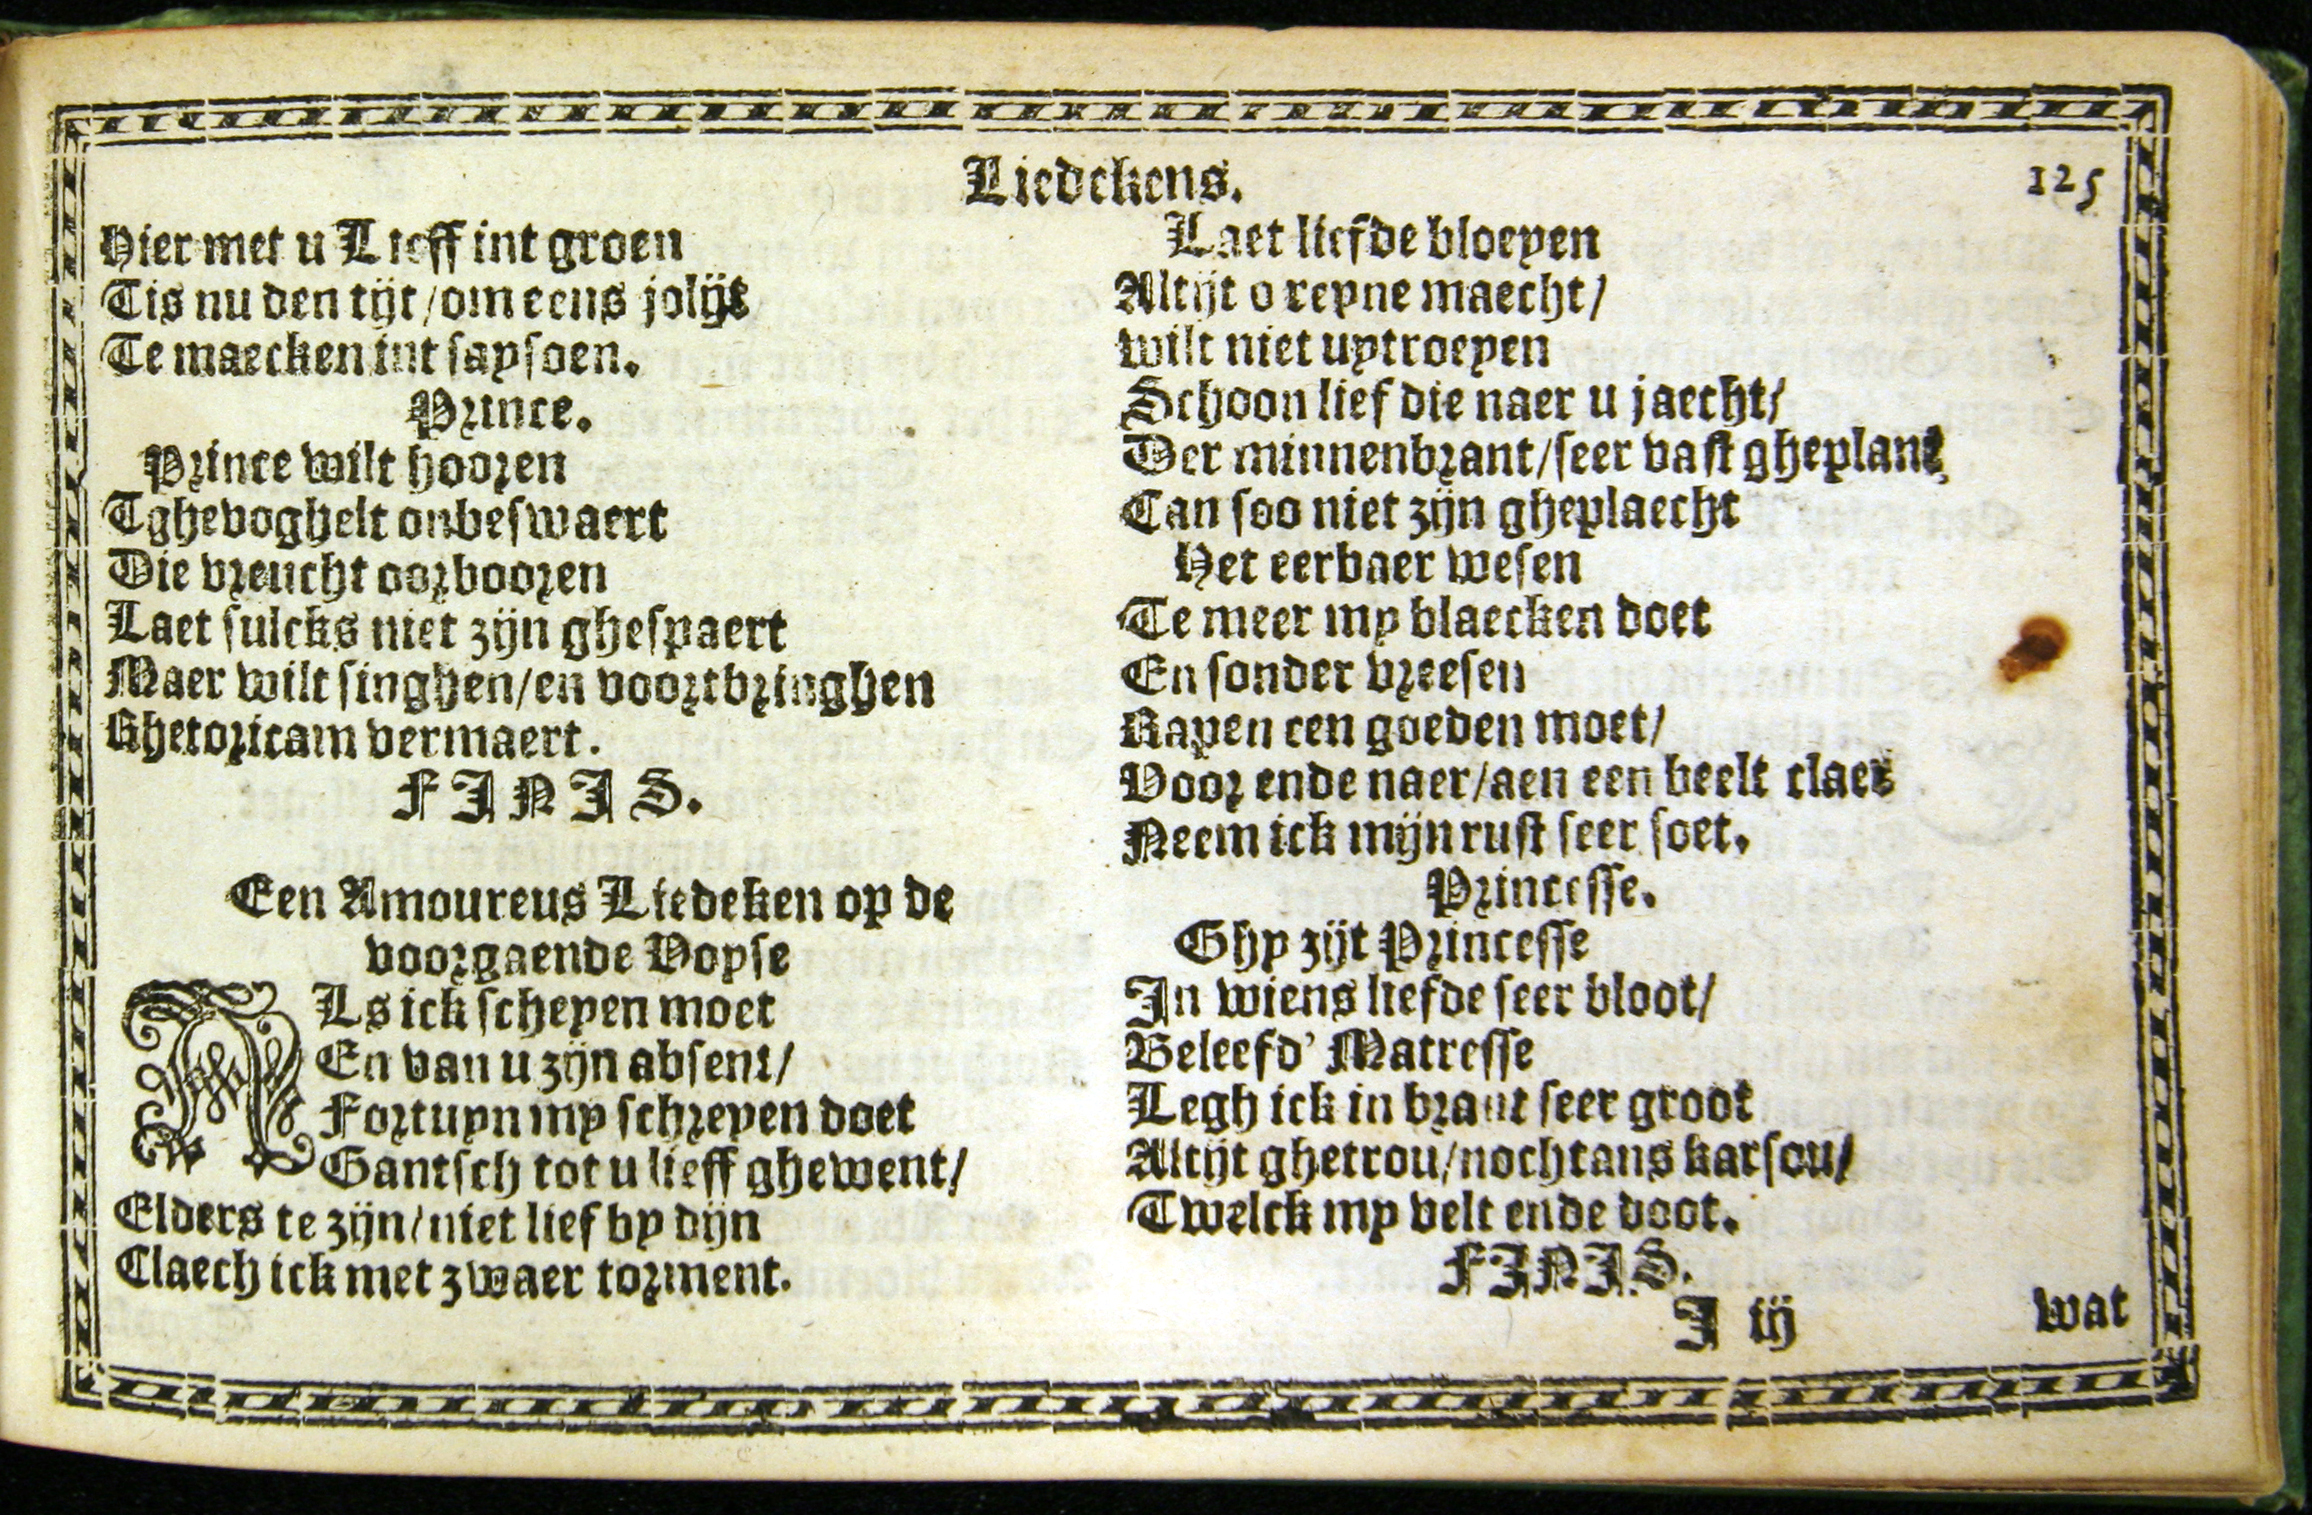 Liedekens.
125
Hier met u Lieff int groen
Tis nu den tijt/om eens jolijt
Te maecken int saysoen.
Prince.
Prince wilt hooren
Tghevoghelt onbeswaert
Die vreucht oorbooren
Laet sulcks niet zijn ghespaert
Maer wilt singhen/en voortbringhen
Rhetoricam vermaert.
FINIS.
Een Amoureus Liedeken op de
voorgaende Voyse
ALs ick scheyen moet
En van u zijn absent/
Fortuyn my schreyen doet
Gantsch tot u lieff ghewent/
Elders te zijn/niet lief by dijn
Claech ick met zwaer torment.
Laet liefde bloeyen
Altijt o reyne maecht/
wilt niet uytroeyen
Schoon lief die naer u jaecht/
Der minnenbrant/seer vast gheplant,
Can soo niet zijn gheplaecht
Het eerbaer wesen
Te meer my blaecken doet
En sonder vreesen
Rapen een goeden moet/
Voor ende naer/aen een beelt claer
Neem ick mijn rust seer soet.
Princesse.
Ghy zijt Princesse
In wiens liefde seer bloot/
Beleefd' Matresse
Legh ick in brant seer groot
Altijt ghetrou/nochtans karsou/
Twelck my velt ende doot.
FINIS.
I iij
wat